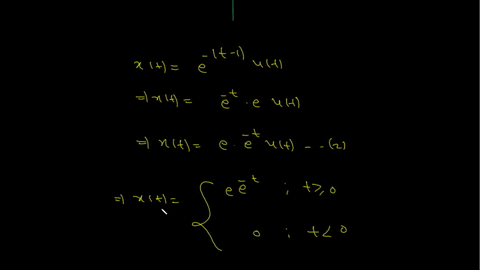 x(t) = e^{-(t-1)} u(t)
=> x(t) = e^{-t} . e u(t)
=> x(t) = e . e^{-t} u(t) -- (2)
=> x(t) = { e e^{-t} ; t ≥ 0
0 ; t < 0